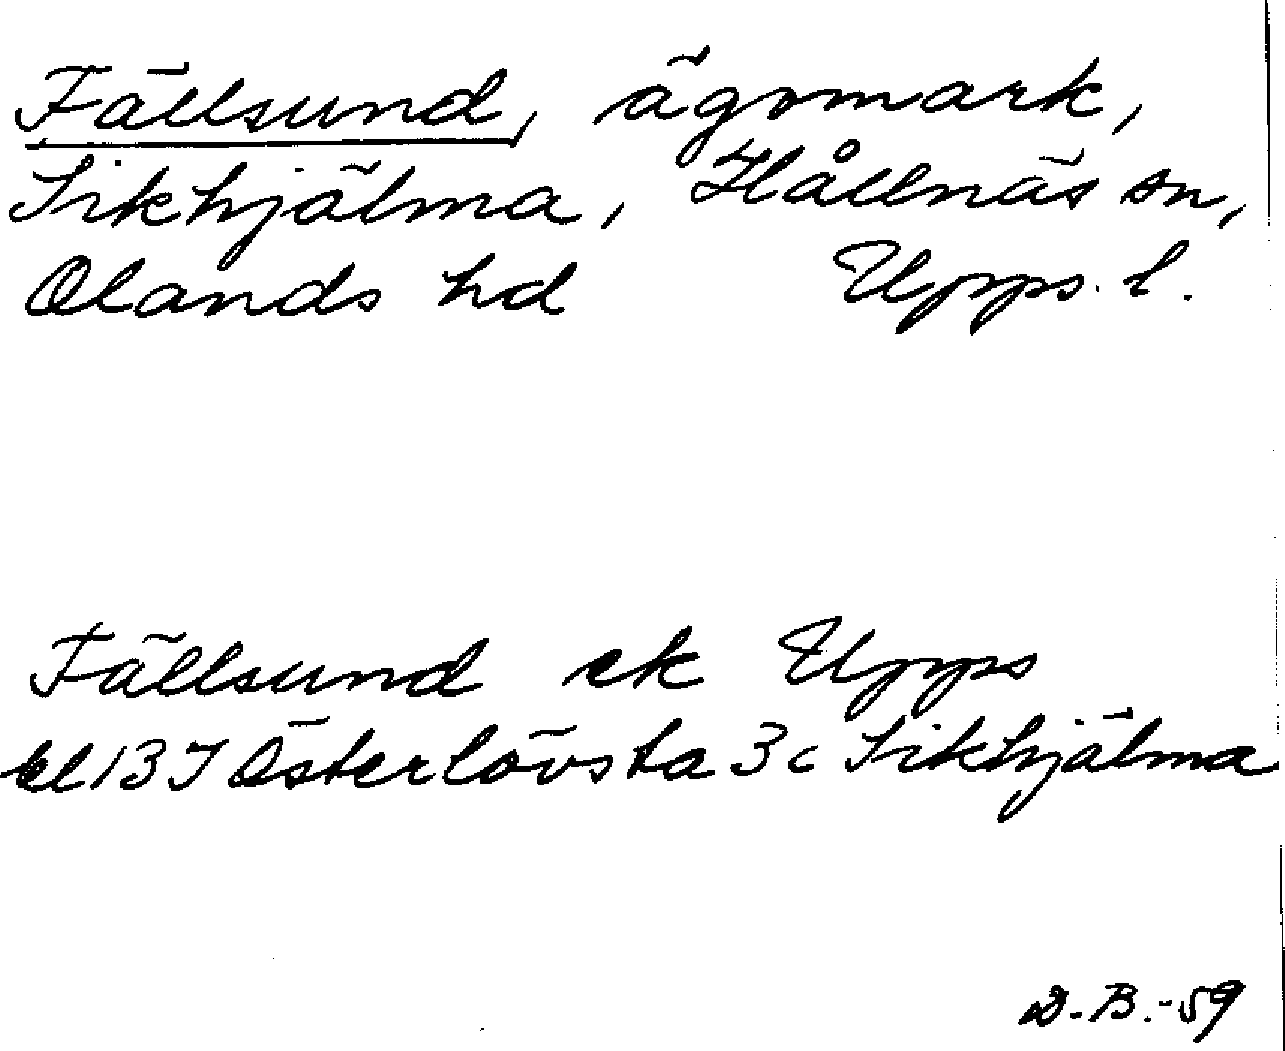 Fällsund, ägomark,
Sikhjälma, Hållnäs sn,
Olands hd Upps. l.
Fällsund ek Upps
bl 13 I Österlövsta 3c Sikhjälma
D. B. -59